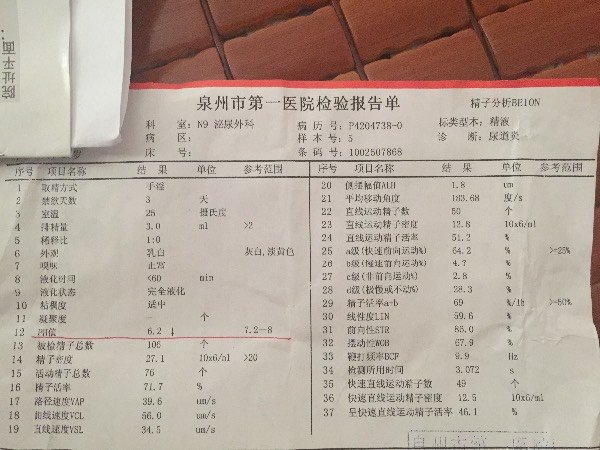 院址平面
泉州市第一医院检验报告单
精子分析BEION
科 室: N9 泌尿外科 病历号: P4204738-0 标类型本: 精液
病区: 样本号: 5 诊 断: 尿道炎
床号: 条码号: 1002507868
序号 项目名称 结果 单位 参考范围
1 取精方式 手淫
2 禁欲天数 3 天
3 室温 25 摄氏度
4 排精量 3.0 ml >2
5 稀释比 1:0
6 外观 乳白 灰白,淡黄色
7 嗅味 正常
8 液化时间 <60 min
9 液化状态 完全液化
10 粘稠度 适中
11 凝聚度 - 个
12 PH值 6.2 ↓ 7.2-8
13 被检精子总数 106 个
14 精子密度 27.1 10x6/ml >20
15 活动精子总数 76 个
16 精子活率 71.7 %
17 路径速度VAP 39.6 um/s
18 曲线速度VCL 56.0 um/s
19 直线速度VSL 34.5 um/s
序号 项目名称 结果 单位 参考范围
20 侧摆幅值ALH 1.8 um
21 平均移动角度 183.68 度/s
22 直线运动精子数 50 个
23 直线运动精子密度 12.8 10x6/ml
24 直线运动精子活率 51.2 %
25 a级(快速前向运动%) 64.2 % >=25%
26 b级(慢速前向运动%) 4.7 %
27 c级(非前向运动%) 2.8 %
28 d级(极慢或不动%) 28.3 %
29 精子活率a+b 69 %/lb >=50%
30 线性度LIN 59.6 %
31 前向性STR 85.0 %
32 摆动性WOB 67.9 %
33 鞭打频率BCF 9.9 Hz
34 检测所用时间 3.072 s
35 快速直线运动精子数 49 个
36 快速直线运动精子密度 12.5 10x6/ml
37 呈快速直线运动精子活率 46.1 %